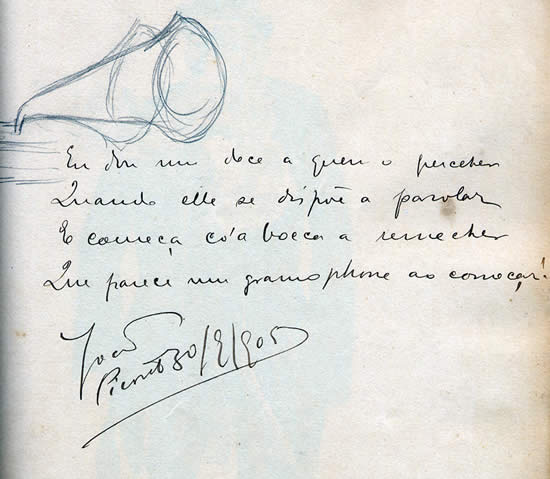 Eu dou um doce a quem o perceber
Quando elle se dispõe a parolar
E começa co'a bocca a remecher
Que parece um gramophone ao começar!
João
30/9/905